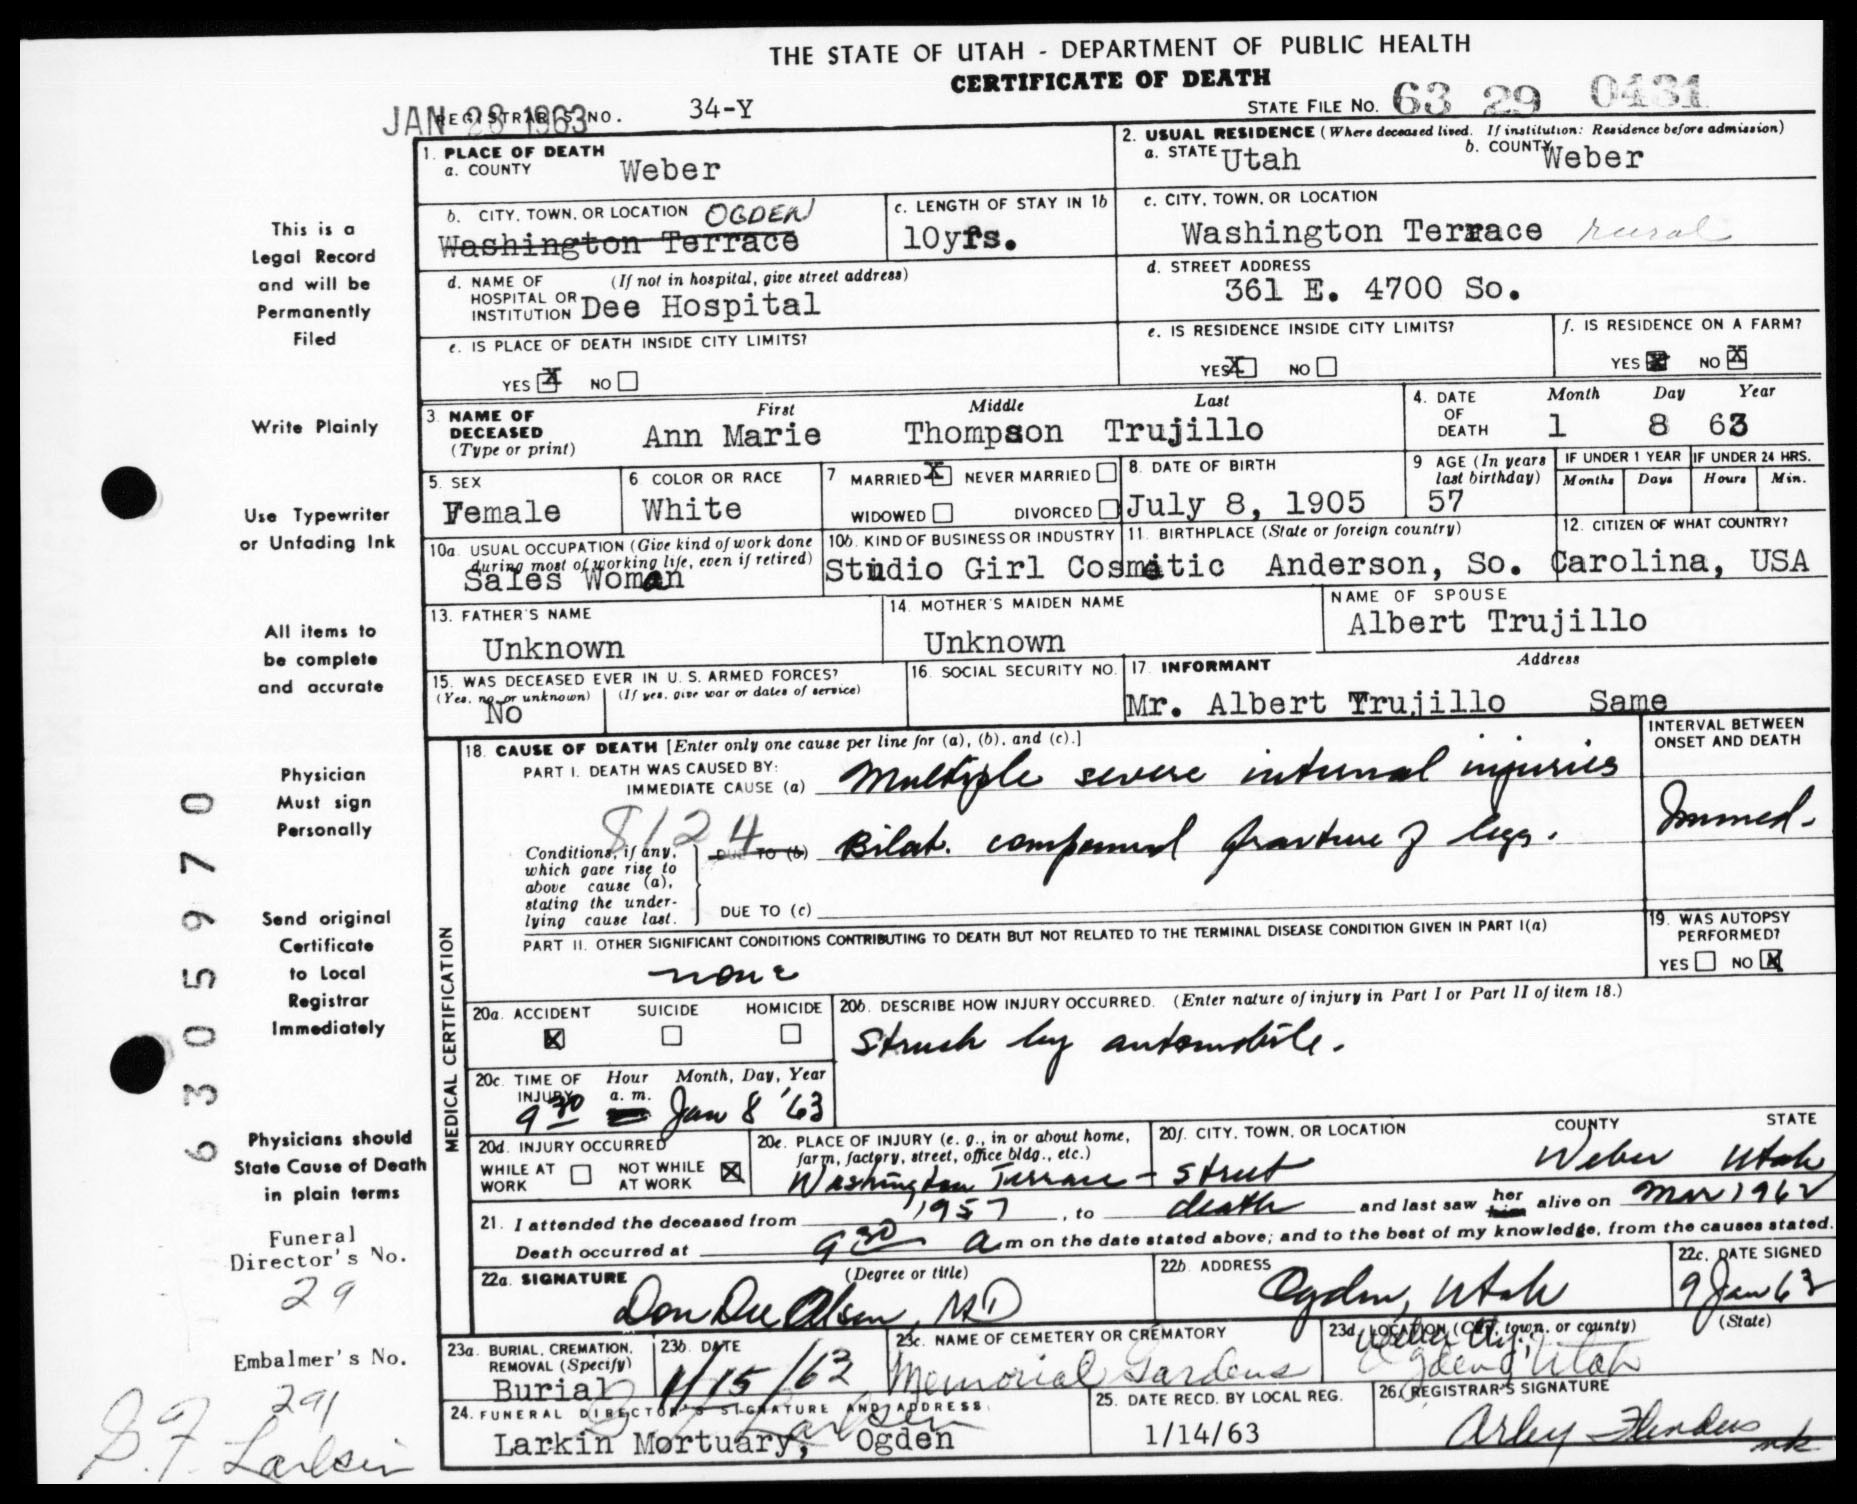 THE STATE OF UTAH - DEPARTMENT OF PUBLIC HEALTH
CERTIFICATE OF DEATH
JAN 28 1963 REGISTRAR'S NO. 34-Y STATE FILE NO. 63 29 0431
1. PLACE OF DEATH
a. COUNTY Weber
2. USUAL RESIDENCE (Where deceased lived. If institution: Residence before admission)
a. STATE Utah b. COUNTY Weber
b. CITY, TOWN, OR LOCATION OGDEN
Washington Terrace
c. LENGTH OF STAY IN 1b
10yrs.
c. CITY, TOWN, OR LOCATION
Washington Terrace rural
d. NAME OF HOSPITAL OR INSTITUTION (If not in hospital, give street address)
Dee Hospital
d. STREET ADDRESS
361 E. 4700 So.
e. IS PLACE OF DEATH INSIDE CITY LIMITS?
YES X NO
e. IS RESIDENCE INSIDE CITY LIMITS?
YES X NO
f. IS RESIDENCE ON A FARM?
YES X NO X
3. NAME OF DECEASED (Type or print)
First Middle Last
Ann Marie Thompson Trujillo
4. DATE OF DEATH
Month Day Year
1 8 63
5. SEX
Female
6 COLOR OR RACE
White
7 MARRIED X NEVER MARRIED
WIDOWED DIVORCED
8. DATE OF BIRTH
July 8, 1905
9 AGE (In years last birthday)
57
IF UNDER 1 YEAR
Months Days
IF UNDER 24 HRS.
Hours Min.
10a. USUAL OCCUPATION (Give kind of work done during most of working life, even if retired)
Sales Woman
10b. KIND OF BUSINESS OR INDUSTRY
Studio Girl Cosmetic
11. BIRTHPLACE (State or foreign country)
Anderson, So. Carolina,
12. CITIZEN OF WHAT COUNTRY?
USA
13. FATHER'S NAME
Unknown
14. MOTHER'S MAIDEN NAME
Unknown
NAME OF SPOUSE
Albert Trujillo
15. WAS DECEASED EVER IN U. S. ARMED FORCES?
(Yes, no, or unknown) (If yes, give war or dates of service)
No
16. SOCIAL SECURITY NO.
17. INFORMANT Address
Mr. Albert Trujillo Same
MEDICAL CERTIFICATION
18. CAUSE OF DEATH [Enter only one cause per line for (a), (b), and (c).]
PART I. DEATH WAS CAUSED BY:
IMMEDIATE CAUSE (a) Multiple severe internal injuries
8124
Conditions, if any, which gave rise to above cause (a), stating the underlying cause last.
DUE TO (b) Bilat. compound fracture of legs.
DUE TO (c)
INTERVAL BETWEEN ONSET AND DEATH
Immed.
PART II. OTHER SIGNIFICANT CONDITIONS CONTRIBUTING TO DEATH BUT NOT RELATED TO THE TERMINAL DISEASE CONDITION GIVEN IN PART I(a)
none
19. WAS AUTOPSY PERFORMED?
YES NO X
20a. ACCIDENT SUICIDE HOMICIDE
X
20b. DESCRIBE HOW INJURY OCCURRED. (Enter nature of injury in Part I or Part II of item 18.)
Struck by automobile.
20c. TIME OF INJURY Hour a. m. Month, Day, Year
9 30 Jan 8 '63
20d. INJURY OCCURRED
WHILE AT WORK NOT WHILE AT WORK X
20e. PLACE OF INJURY (e. g., in or about home, farm, factory, street, office bldg., etc.)
20f. CITY, TOWN, OR LOCATION COUNTY STATE
Washington Terrace - street Weber Utah
21. I attended the deceased from 1957, to death and last saw her him alive on Mar 1962
Death occurred at 9 30 a m on the date stated above; and to the best of my knowledge, from the causes stated.
22a. SIGNATURE (Degree or title)
Don Dee Olsen, MD
22b. ADDRESS
Ogden, Utah
22c. DATE SIGNED
9 Jan 63
23a. BURIAL, CREMATION, REMOVAL (Specify)
Burial
23b. DATE
1/15/63
23c. NAME OF CEMETERY OR CREMATORY
Memorial Gardens
23d. LOCATION (City, town, or county) (State)
Weber
Ogden, Utah
24. FUNERAL DIRECTOR'S SIGNATURE AND ADDRESS
Larkin
Larkin Mortuary, Ogden
25. DATE RECD. BY LOCAL REG.
1/14/63
26. REGISTRAR'S SIGNATURE
Arley Flinders
This is a
Legal Record
and will be
Permanently
Filed
Write Plainly
Use Typewriter
or Unfading Ink
All items to
be complete
and accurate
Physician
Must sign
Personally
Send original
Certificate
to Local
Registrar
Immediately
Physicians should
State Cause of Death
in plain terms
Funeral
Director's No.
29
Embalmer's No.
291
S. F. Larkin
6305970